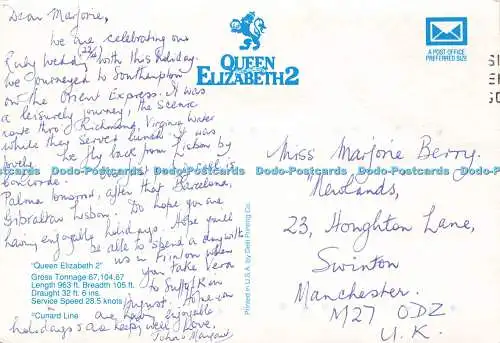 Dear Marjorie,
We are celebrating our
Ruby Wedding (22/6) with this holiday.
We journeyed to Southampton
on the Orient Express. It was
a leisurely journey, the scenic
route thro' Richmond, Virginia Water
while they served lunch. It was
lovely. We fly back from Lisbon by
Concorde.
Palma tomorrow, after that Barcelona,
Gibraltar Lisbon. Do hope you are
having enjoyable holidays. Hope you'll
be able to spend a day with
us in when
you take Vera
to Suffolk in
August. Hope you
are having enjoyable
holidays & are keeping well. Love,
John & Margaret
"Queen Elizabeth 2"
Gross Tonnage 67,104.67
Length 963 ft. Breadth 105 ft.
Draught 32 ft. 6 ins.
Service Speed 28.5 knots
"Cunard Line"
QUEEN
ELIZABETH 2
Printed in U.S.A. by Dexil Printing Co.
A POST OFFICE
PREFERRED SIZE
Miss Marjorie Berry.
"Newlands,
23, Houghton Lane,
Swinton
Manchester.
M27 0DZ
U.K.
Dodo-Postcards Dodo-Postcards Dodo-Postcards Dodo-Postcards